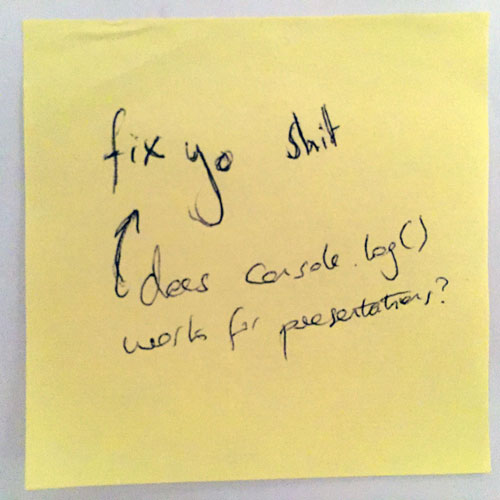 fix yo shit
does console.log()
work for presentations?